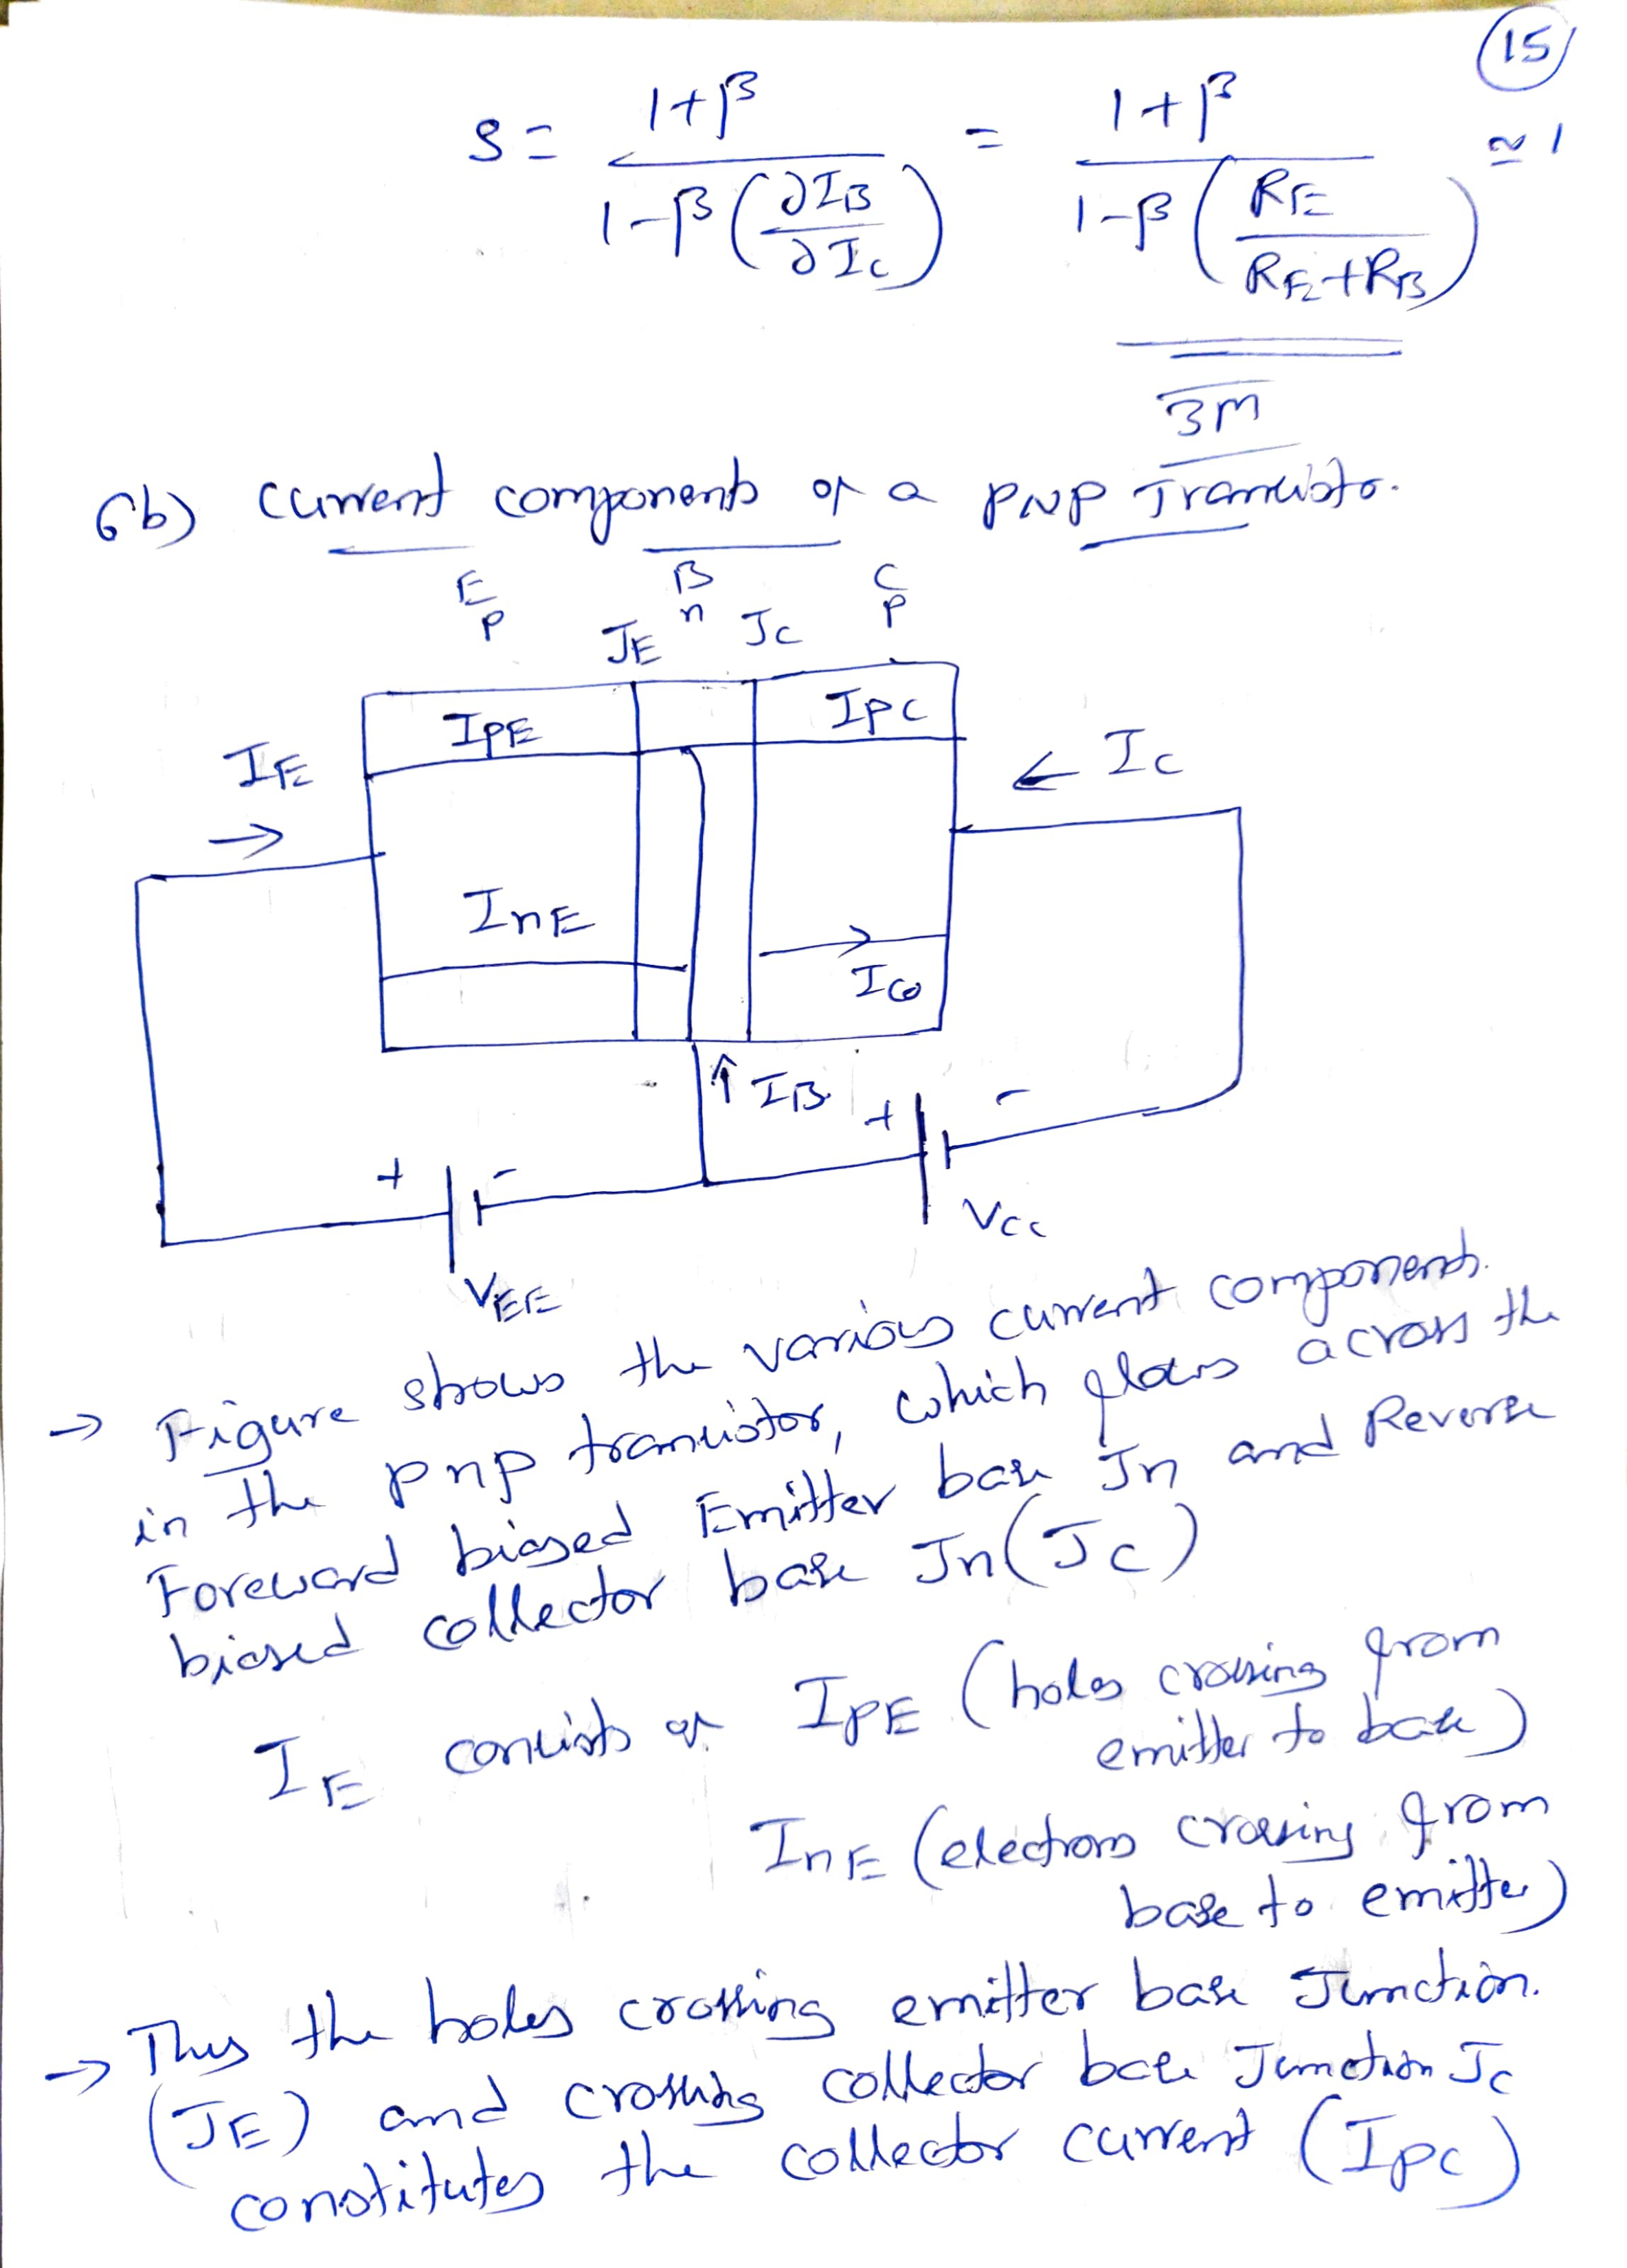 15
S = 1+β / 1-β (∂IB / ∂Ic) = 1+β / 1-β (RE / RE+RB) ≃ 1
3M
6b) Current components of a PNP Transistor.
E B C
p n p
JE Jc
IpE IpC
IE → ← Ic
InE
Ico
↑ IB
+ -
+ -
Vcc
VEE
→ Figure shows the various current components.
in the pnp transistor, which flows across the
Foreward biased Emitter base Jn and Reverse
biased collector base Jn (Jc)
IE consists of IPE (holes crossing from
emitter to base)
InE (electrons crossing from
base to emitter)
→ Thus the holes crossing emitter base Junction.
(JE) and crossing collector base Junction Jc
constitutes the collector current (Ipc)